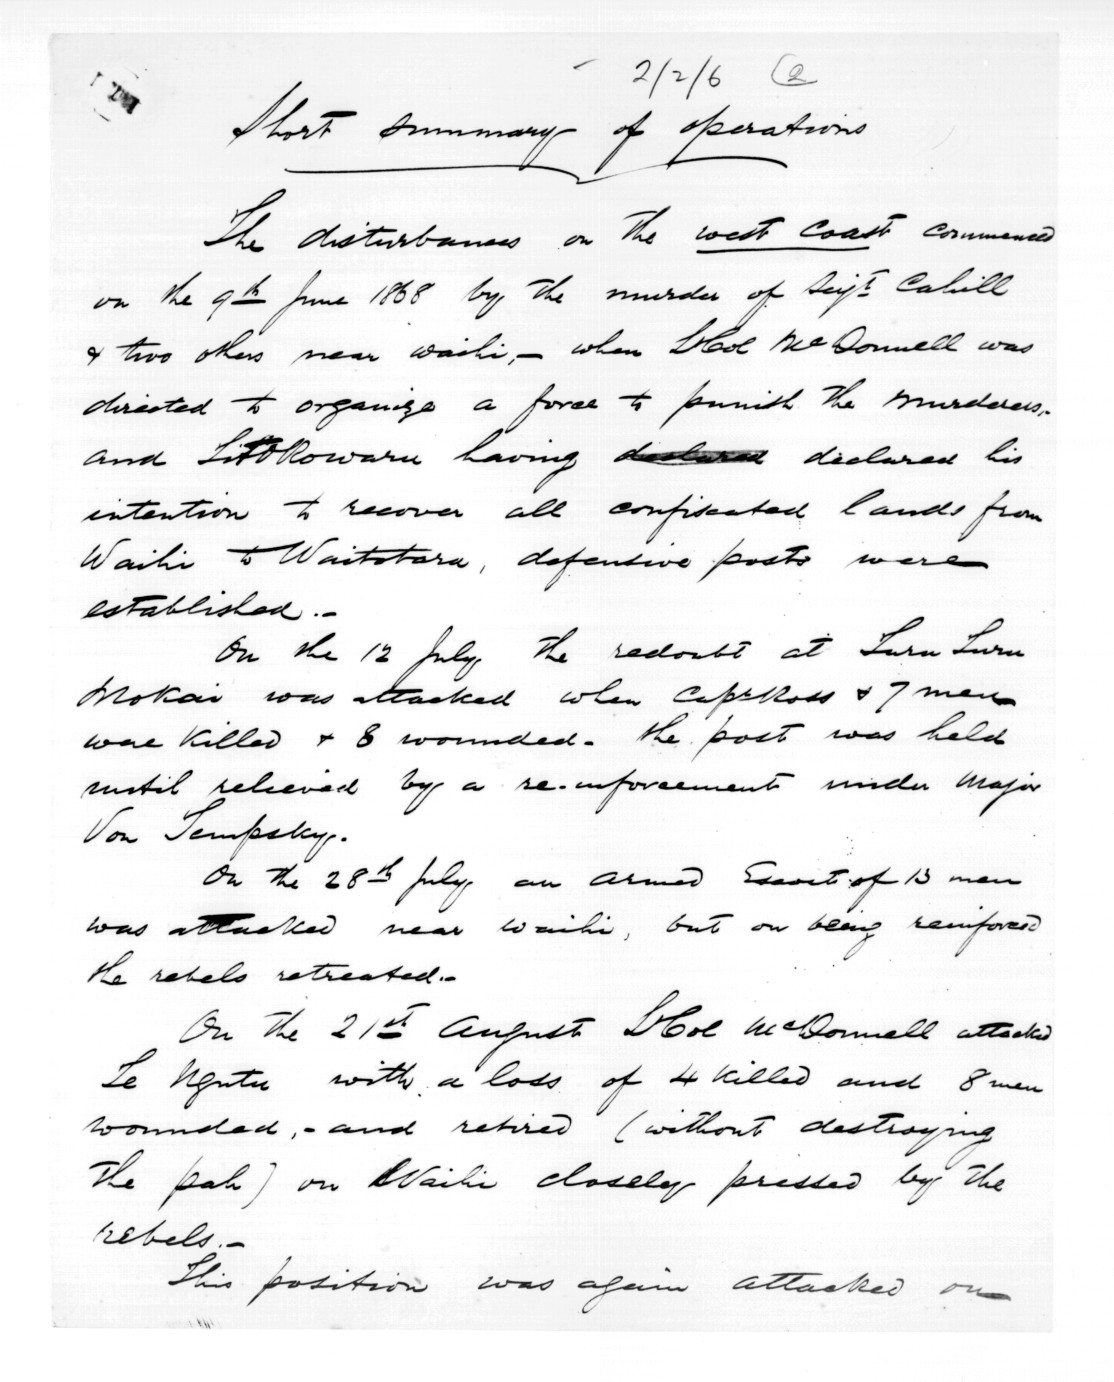 2/2/6 (2
Short summary of operations
The disturbances on the west coast commenced
on the 9th June 1868 by the murder of Sergt Cahill
& two others near waihi,- when Lt Col McDonnell was
directed to organize a force to punish the murderers.
and TitoKowaru having declared declared his
intention to recover all confiscated lands from
Waihi to Waitotara, defensive posts were
established.-
On the 12 July the redoubt at Turu Turu
Mokai was attacked when Capt Ross & 7 men
were killed & 8 wounded- the post was held
until relieved by a re-inforcement under Major
Von Tempsky.
On the 28th July an armed Escort of 13 men
was attacked near waihi, but on being reinforced
the rebels retreated.-
On the 21st August Lt Col McDonnell attacked
Te Ngutu with a loss of 4 killed and 8 men
wounded,- and retired (without destroying
the pah) on Waihi closely pressed by the
rebels.-
This position was again attacked on